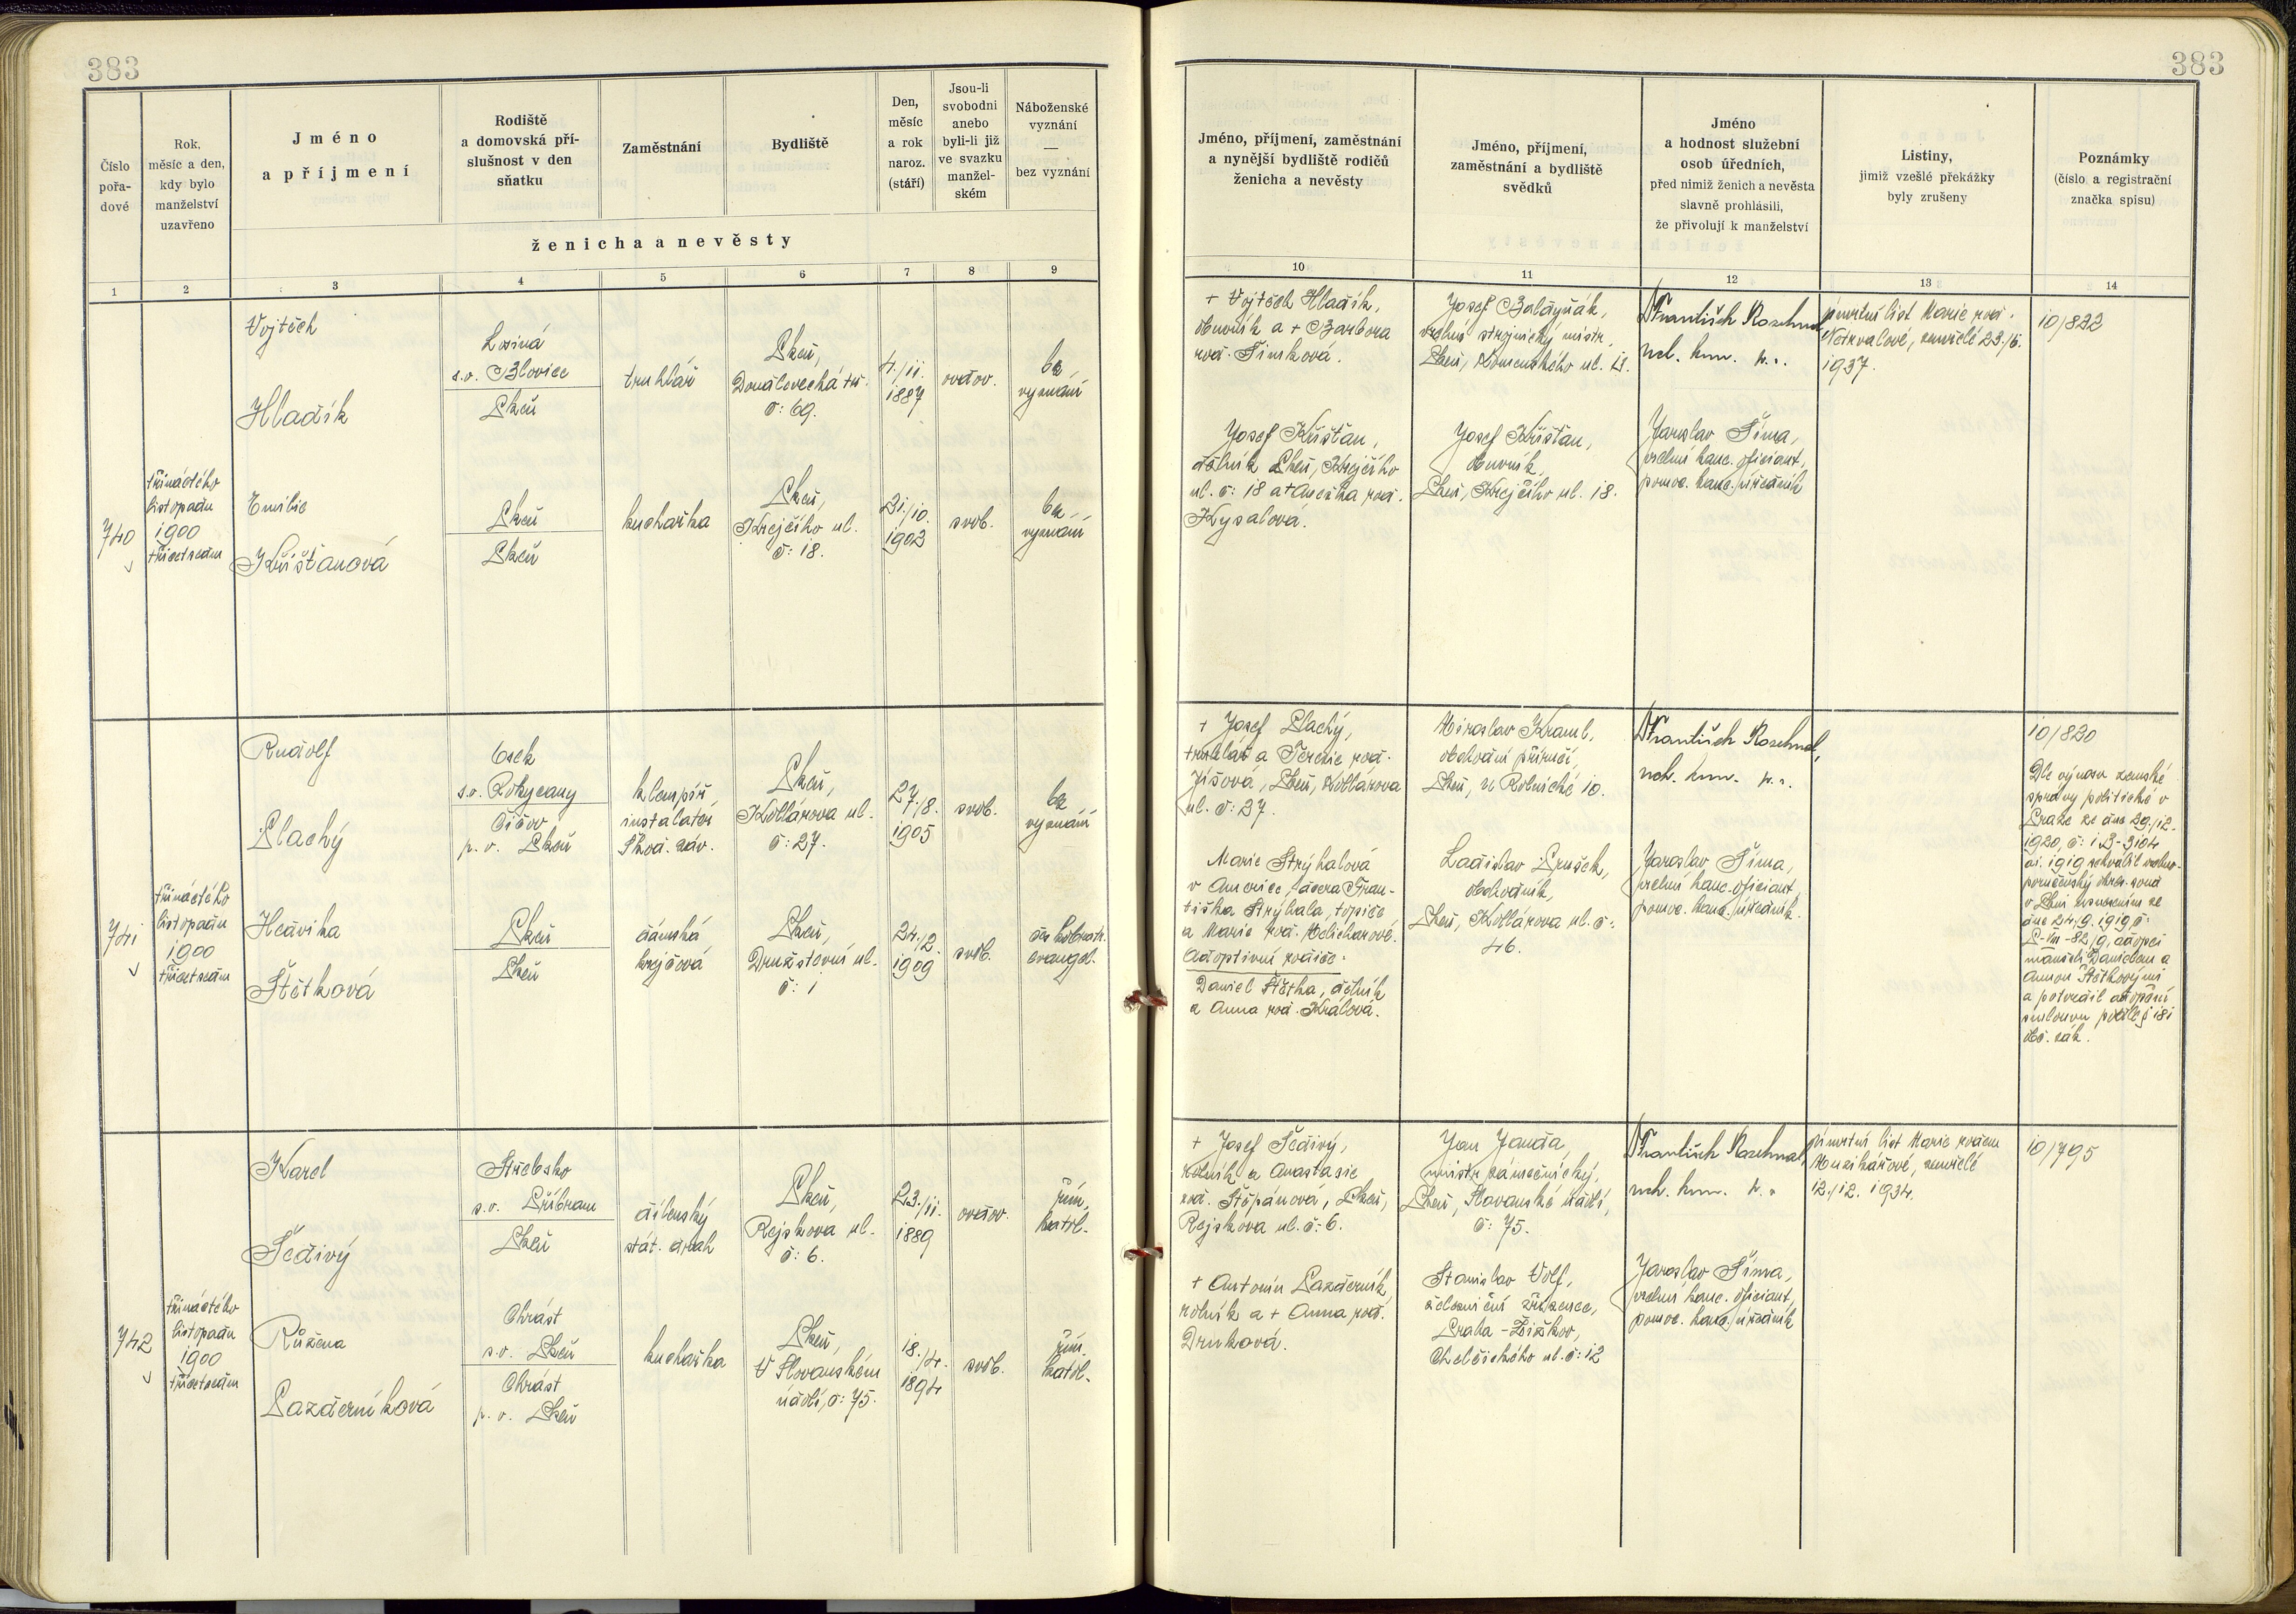 383
383
Číslo pořa-dové
Rok, měsíc a den, kdy bylo manželství uzavřeno
Jméno a příjmení
Rodiště a domovská pří-slušnost v den sňatku
Zaměstnání
Bydliště
Den, měsíc a rok naroz. (stáří)
Jsou-li svobodni anebo byli-li již ve svazku manžel-ském
Náboženské vyznání — bez vyznání
ženicha a nevěsty
Jméno, příjmení, zaměstnání a nynější bydliště rodičů ženicha a nevěsty
Jméno, příjmení, zaměstnání a bydliště svědků
Jméno a hodnost služební osob úředních, před nimiž ženich a nevěsta slavně prohlásili, že přivolují k manželství
Listiny, jimiž vzešlé překážky byly zrušeny
Poznámky (číslo a registrační značka spisu)
1 2 3 4 5 6 7 8 9 10 11 12 13 14
740
třináctého
listopadu
1900
třicetsedm
Vojtěch
Hladík
Losiná
s.o. Blovice
Plzeň
truhlář
Plzeň,
Doudlevecká tř.
č: 69.
4./11.
1887
ovdov.
bez
vyznání
Emilie
Křišťanová
Plzeň
Plzeň
kuchařka
Plzeň,
Krejčího ul.
č: 18.
31./10.
1903
svob.
bez
vyznání
+ Vojtěch Hladík,
obuvník a + Barbora
roz. Šimková.
Josef Křišťan,
dělník Plzeň, Krejčího
ul. č: 18 a + Anežka roz.
Kysalová.
vrchní strojnický mistr,
Plzeň, Komenského ul.
Josef Křišťan,
obuvník,
Plzeň, Krejčího ul. 18.
František
Jaroslav Šíma,
vrchní kanc. oficiant,
pomoc. kanc. úředník
úmrtní list Marie roz.
Netrvalové, zemřelé 23./6.
1937.
10/822
741
třináctého
listopadu
1900
třicetsedm
Rudolf
Plachý
Osek
s.o. Rokycany
Čičov
p. o. Plzeň
klempíř,
instalatér
Škod. záv.
Plzeň,
Kollárova ul.
č: 27.
27./8.
1905
svob.
bez
vyznání
Hedvika
Štětková
Plzeň
Plzeň
dámská
krejčová
Plzeň,
Družstevní ul.
č: 1
24./2.
1909
svob.
čes. kobratr.
evangel.
+ Josef Plachý,
truhlář a Terezie roz.
Jíšová, Plzeň, Kollárova
ul. č: 27.
Marie Strýhalová
v Americe, dcera Fran-
tiška Strýhala, topiče
a Marie roz. Melicharové.
Adoptivní rodiče:
Daniel Štětka, dělník
a Anna roz. Králová.
Miroslav Kraml,
obchodní příručí,
Plzeň, U Rolnické 10.
Ladislav Prušek,
obchodník,
Plzeň, Kollárova ul. č:
46.
František
Jaroslav Šíma,
vrchní kanc. oficiant,
pomoc. kanc. úředník.
10/820
Dle výnosu zemské
správy politické v
Praze ze dne 29./12.
1920, č:
ai. 1919 schválil vrchno-
poručenský okres. soud
v Plzni usnesením ze
dne 24.9.1919 č:
P-VIII-82/9, adopci
manželi Danielem a
Annou Štětkovými
a potvrdil adopční
smlouvu podle § 181
obč. zák.
742
třináctého
listopadu
1900
třicetsedm
Karel
Šedivý
Střebsko
s.o. Příbram
Plzeň
dílenský
stát. drah
Plzeň,
Rejskova ul.
č: 6.
23./11.
1889
ovdov.
řím.
katol.
Růžena
Pazderníková
Chrást
s.o. Plzeň
Chrást
p. o. Plzeň
kuchařka
Plzeň,
V Slovanském
údolí, č: 75.
18./4.
1894
svob.
řím.
katol.
+ Josef Šedivý,
rolník a Anastasie
roz. Štěpánová, Plzeň,
Rejskova ul. č: 6.
+ Antonín Pazderník,
rolník a + Anna roz.
Drnková.
Jan Janda,
mistr zámečnický,
Plzeň, Slovanské údolí,
č: 75.
Stanislav Volf,
železniční zřízenec,
Praha - Žižkov,
Chelčického ul. č: 12
František
Jaroslav Šíma,
vrchní kanc. oficiant,
pomoc. kanc. úředník
úmrtní list Marie rozen.
Muzikářové, zemřelé
12./12. 1934.
10/795